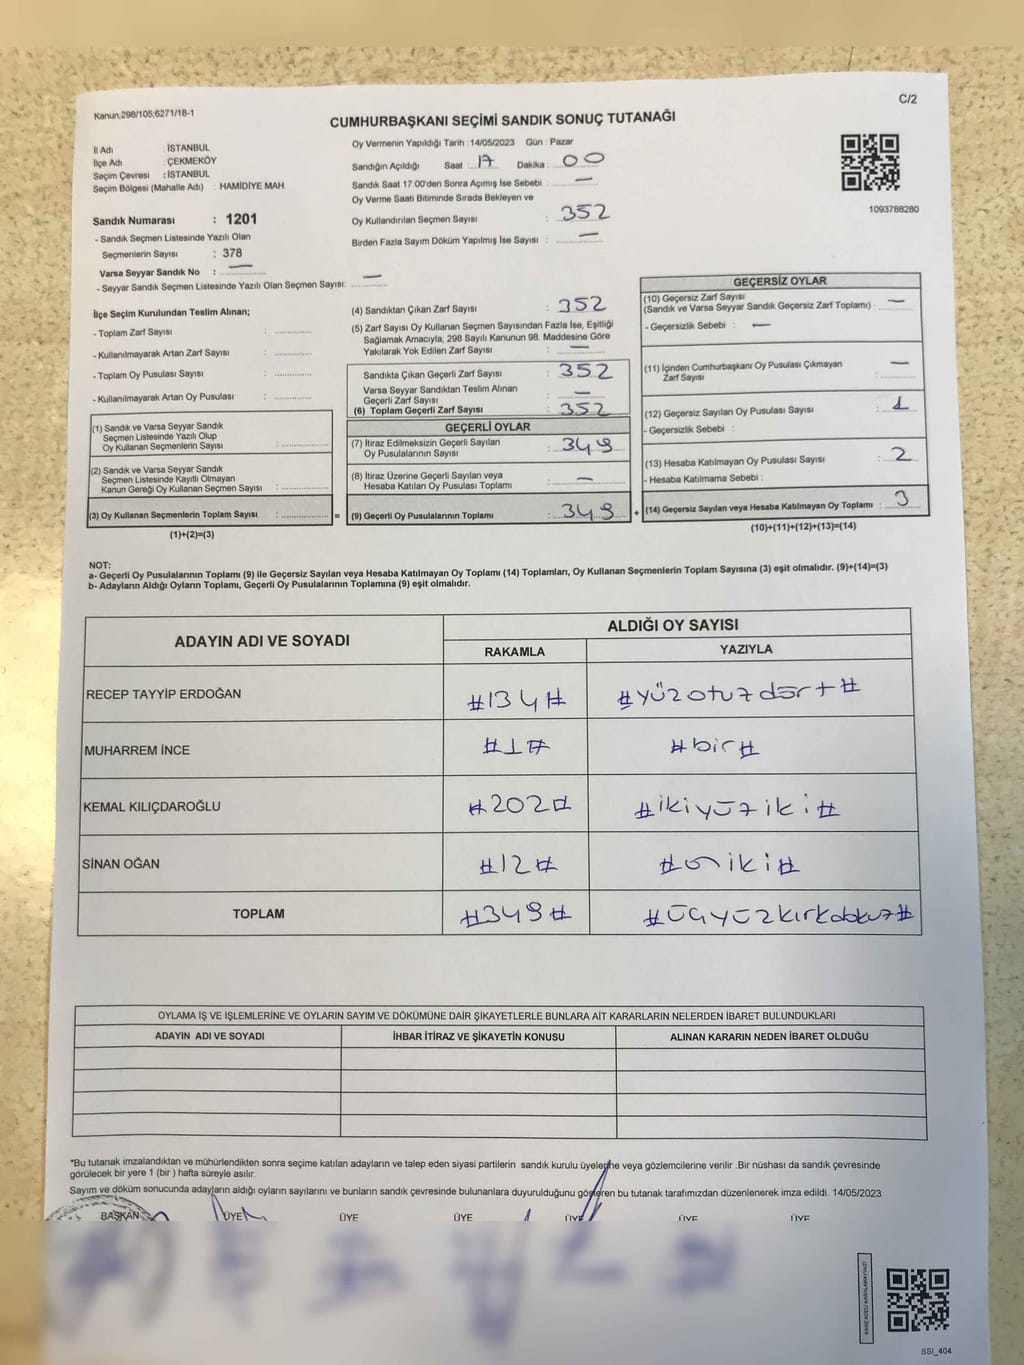 C/2
Kanun,298/105,6271/18-1
CUMHURBAŞKANI SEÇİMİ SANDIK SONUÇ TUTANAĞI
İl Adı : İSTANBUL
İlçe Adı : ÇEKMEKÖY
Seçim Çevresi : İSTANBUL
Seçim Bölgesi (Mahalle Adı) : HAMİDİYE MAH.
Sandık Numarası : 1201
- Sandık Seçmen Listesinde Yazılı Olan
Seçmenlerin Sayısı : 378
Varsa Seyyar Sandık No : —
- Seyyar Sandık Seçmen Listesinde Yazılı Olan Seçmen Sayısı: —
Oy Vermenin Yapıldığı Tarih :14/05/2023 Gün : Pazar
Sandığın Açıldığı Saat : 17 Dakika : 00
Sandık Saat 17:00'den Sonra Açımış İse Sebebi : —
Oy Verme Saati Bitiminde Sırada Bekleyen ve
Oy Kullandırılan Seçmen Sayısı : 352
Birden Fazla Sayım Döküm Yapılmış İse Sayısı : —
1093788280
İlçe Seçim Kurulundan Teslim Alınan;
- Toplam Zarf Sayısı :
- Kullanılmayarak Artan Zarf Sayısı :
- Toplam Oy Pusulası Sayısı :
- Kullanılmayarak Artan Oy Pusulası :
(1) Sandık ve Varsa Seyyar Sandık
Seçmen Listesinde Yazılı Olup
Oy Kullanan Seçmenlerin Sayısı :
(2) Sandık ve Varsa Seyyar Sandık
Seçmen Listesinde Kayıtlı Olmayan
Kanun Gereği Oy Kullanan Seçmen Sayısı :
(3) Oy Kullanan Seçmenlerin Toplam Sayısı : =
(1)+(2)=(3)
(4) Sandıktan Çıkan Zarf Sayısı : 352
(5) Zarf Sayısı Oy Kullanan Seçmen Sayısından Fazla İse, Eşitliği
Sağlamak Amacıyla; 298 Sayılı Kanunun 98. Maddesine Göre
Yakılarak Yok Edilen Zarf Sayısı : —
Sandıkta Çıkan Geçerli Zarf Sayısı : 352
Varsa Seyyar Sandıktan Teslim Alınan
Geçerli Zarf Sayısı : —
(6) Toplam Geçerli Zarf Sayısı : 352
GEÇERLİ OYLAR
(7) İtiraz Edilmeksizin Geçerli Sayılan
Oy Pusulalarının Sayısı : 349
(8) İtiraz Üzerine Geçerli Sayılan veya
Hesaba Katılan Oy Pusulası Toplamı : —
(9) Geçerli Oy Pusulalarının Toplamı : 349 +
GEÇERSİZ OYLAR
(10) Geçersiz Zarf Sayısı
(Sandık ve Varsa Seyyar Sandık Geçersiz Zarf Toplamı) : —
- Geçersizlik Sebebi : —
(11) İçinden Cumhurbaşkanı Oy Pusulası Çıkmayan
Zarf Sayısı : —
(12) Geçersiz Sayılan Oy Pusulası Sayısı : 1
- Geçersizlik Sebebi :
(13) Hesaba Katılmayan Oy Pusulası Sayısı : 2
- Hesaba Katılmama Sebebi :
(14) Geçersiz Sayılan veya Hesaba Katılmayan Oy Toplamı : 3
(10)+(11)+(12)+(13)=(14)
NOT:
a- Geçerli Oy Pusulalarının Toplamı (9) ile Geçersiz Sayılan veya Hesaba Katılmayan Oy Toplamı (14) Toplamları, Oy Kullanan Seçmenlerin Toplam Sayısına (3) eşit olmalıdır. (9)+(14)=(3)
b- Adayların Aldığı Oyların Toplamı, Geçerli Oy Pusulalarının Toplamına (9) eşit olmalıdır.
ADAYIN ADI VE SOYADI ALDIĞI OY SAYISI
RAKAMLA YAZIYLA
RECEP TAYYİP ERDOĞAN #134# #yüzotuzdört#
MUHARREM İNCE #1# #bir#
KEMAL KILIÇDAROĞLU #202# #ikiyüziki#
SİNAN OĞAN #12# #oniki#
TOPLAM #349# #üçyüzkırkdokuz#
OYLAMA İŞ VE İŞLEMLERİNE VE OYLARIN SAYIM VE DÖKÜMÜNE DAİR ŞİKAYETLERLE BUNLARA AİT KARARLARIN NELERDEN İBARET BULUNDUKLARI
ADAYIN ADI VE SOYADI İHBAR İTİRAZ VE ŞİKAYETİN KONUSU ALINAN KARARIN NEDEN İBARET OLDUĞU
*Bu tutanak imzalandıktan ve mühürlendikten sonra seçime katılan adayların ve talep eden siyasi partilerin sandık kurulu üyelerine veya gözlemcilerine verilir .Bir nüshası da sandık çevresinde
görülecek bir yere 1 (bir ) hafta süreyle asılır.
Sayım ve döküm sonucunda adayların aldığı oyların sayılarını ve bunların sandık çevresinde bulunanlara duyurulduğunu gösteren bu tutanak tarafımızdan düzenlenerek imza edildi. 14/05/2023
BAŞKAN ÜYE ÜYE ÜYE ÜYE ÜYE ÜYE
KARE KODU KARALAMAYINIZ!
SSI_404